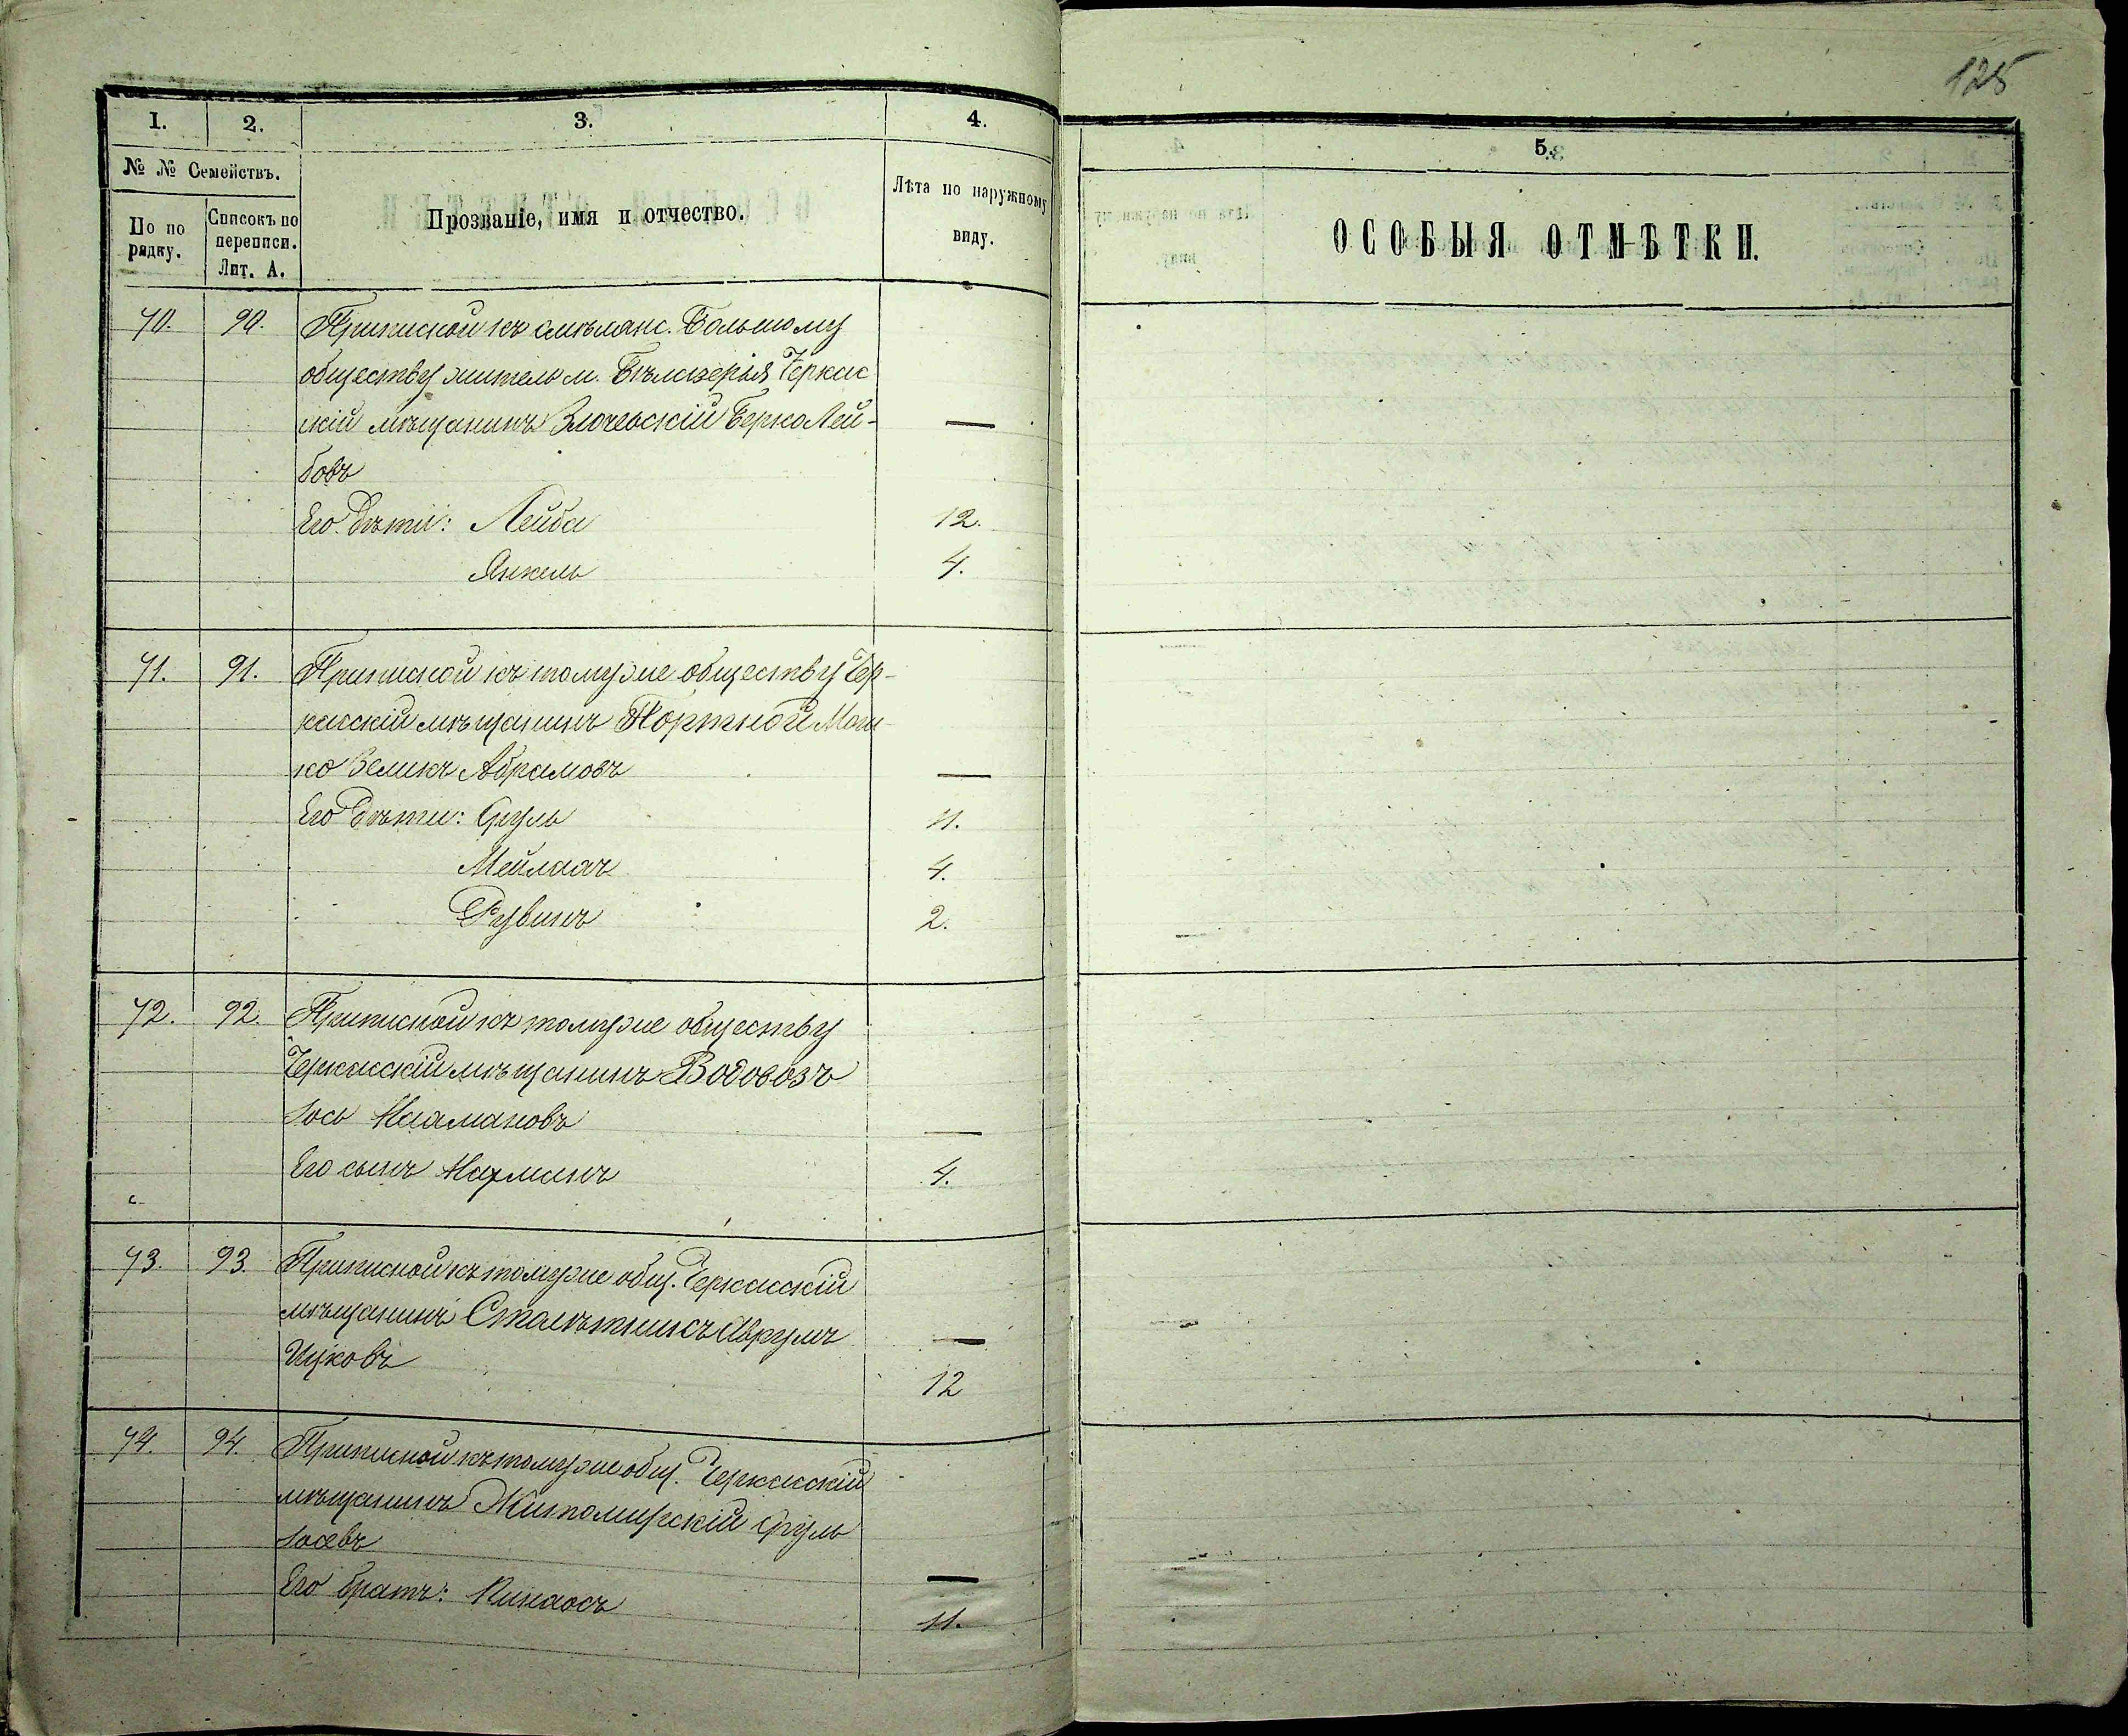 125
1. 2. 3. 4.
5.
№ № Семействъ.
По по рядку.
Списокъ по переписи. Лит. А.
Прозваніе, имя и отчество.
Лѣта по наружному виду.
ОСОБЫЯ ОТМѢТКИ.
70. 90. Приписной къ смѣлянс. Большому
обществу житель м. Бѣлозерья Черкас
скій мѣщанинъ Злочевскій Берко Лей- —
бовъ
Его дѣти: Лейба 12.
Янкель 4.
71. 91. Приписной къ томуже обществу Чер-
касскій мѣщанинъ Портной Мош
ко Зеликъ Абрамовъ —
Его дѣти: Сруль 11.
Мейлахъ 4.
Рувинъ 2.
72. 92. Приписной къ томуже обществу
Черкасскій мѣщанинъ Водовозъ
Іось Нахмановъ —
Его сынъ Нахманъ 4.
73. 93. Приписной къ томуже общ. Черкасскій
мѣщанинъ Аврумъ —
Ицковъ 12
74. 94. Приписной къ томуже общ. Черкасскій
мѣщанинъ Житомирскій Сруль
Іосевъ —
Его братъ: Пинхосъ 11.